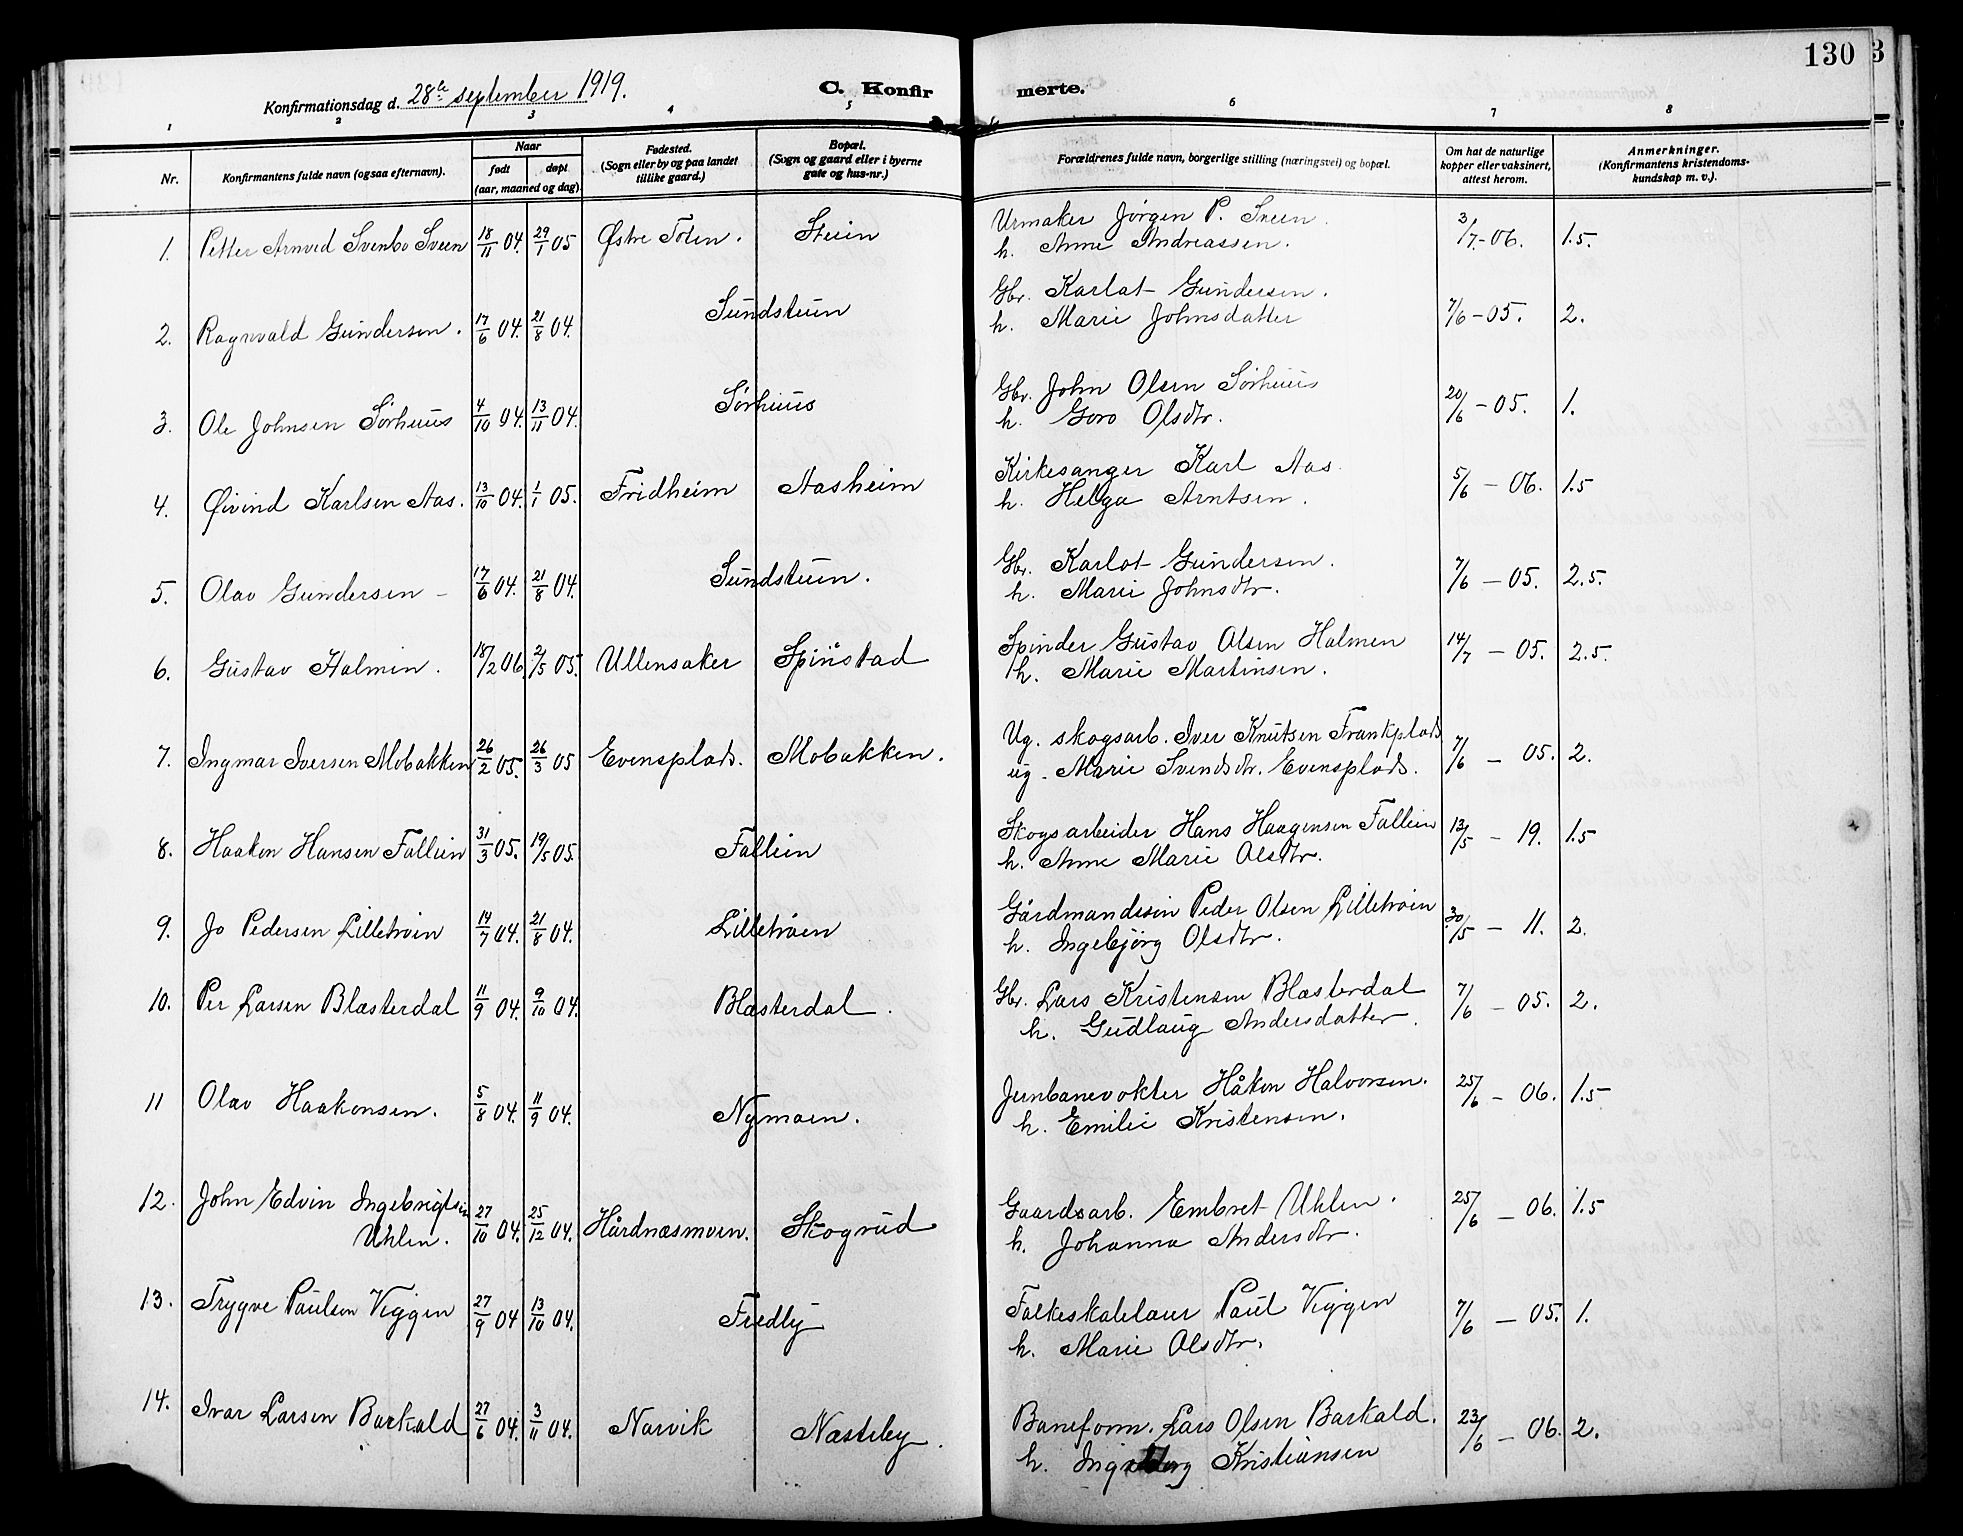 130
3
Konfirmationsdag d. 28de september 1919.
C. Konfirmerte.
1 2 3 4 5 6 7 8
Nr.
Konfirmantens fulde navn (ogsaa efternavn).
Naar
født
døpt
(aar, maaned og dag)
Fødested.
(Sogn eller by og paa landet
tillike gaard.)
Bopæl.
(Sogn og gaard eller i byerne
gate og hus-nr.)
Forældrenes fulde navn, borgerlige stilling (næringsvei) og bopæl.
Om hat de naturlige
kopper eller vaksinert,
attest herom.
Anmerkninger.
(Konfirmantens kristendoms-
kundskap m. v.).
1. Petter Arnved Svenbo Sveen 18/11 04. 29/1 05 Østre Toten. Steien Urmaker Jørgen P. Sveen. 3/7-06. 1.5.
h. Anne Andreassen.
2. Ragnvald Gundersen. 17/6 04. 21/8 04. Sundstuen Gbr. Karlot Gundersen. 7/6-05. 2.
h. Marie Johnsdatter
3. Ole Johnsen Sørhuus 4/10 04. 13/11 04. Sørhuus Gbr. John Olsen Sørhuus 20/6-05. 1.
h. Goro Olsdtr.
4. Øivind Karlsen Aas. 13/10 04. 1/1 05. Fridheim Aasheim Kirkesanger Karl Aas. 5/6-06. 1.5
h. Helga Arntsen.
5. Olav Gundersen - 17/6 04. 21/8 04. Sundstuen. Gbr. Karlot Gundersen. 7/6-05. 2.5.
h. Marie Johnsdtr.
6. Gustav Halmen. 18/2 06. 2/5 05. Ullensaker Spinstad Spinder Gustav Olsen Halmen 14/7-05. 2.5.
h. Marie Martinsen.
7. Ingmar Iversen Mobakken 26/2 05. 26/3 05 Evensplads. Mobakken. Ug. skogsarb. Iver Knutsen Frankplads 7/6-05. 2.
ug. Marie Svendsdtr. Evensplads.
8. Haakon Hansen Fallein 31/3 05. 19/5 05. Fallein Skogsarbeider Hans Haagensen Fallein 13/5-19. 1.5
h. Anne Marie Olsdtr.
9. Jo Pedersen Lilletrøen 14/7 04. 21/8 04. Lilletrøen Gårdmandssøn Peder Olsen Lilletrøen 30/5-11. 2.
h. Ingebjørg Olsdtr.
10. Per Larsen Blæsterdal 11/9 04. 9/10 04. Blæsterdal. Gbr. Lars Kristensen Blæsterdal 7/6-05. 2.
h. Gudlaug Andersdatter.
11 Olav Haakonsen. 5/8 04. 11/9 04. Nymoen. Jernbanevokter Håkon Halvorsen. 25/6-06. 1.5
h. Emilie Kristensen.
12. John Edvin Ingebrigtsen
Uhlen. 27/10 04. 25/12 04. Hårdnæsmoen. Skogrud Gaardsarb. Embret Uhlen. 25/6-06. 1.5
h. Johanna Andersdtr.
13. Trygve Paulsen Viggen 27/9 04 13/10 04. Fredly Folkeskolelærer Paul Viggen 7/6-05. 1.
h. Marie Olsdtr.
14. Ivar Larsen Barkald 27/6 04. 3/11 04. Narvik Næsteby. Baneform. Lars Olsen Barkald. 23/6-06. 2.
h. Ingeborg Kristiansen